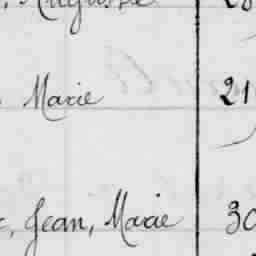 Auguste
Marie 21
Jean, Marie 30